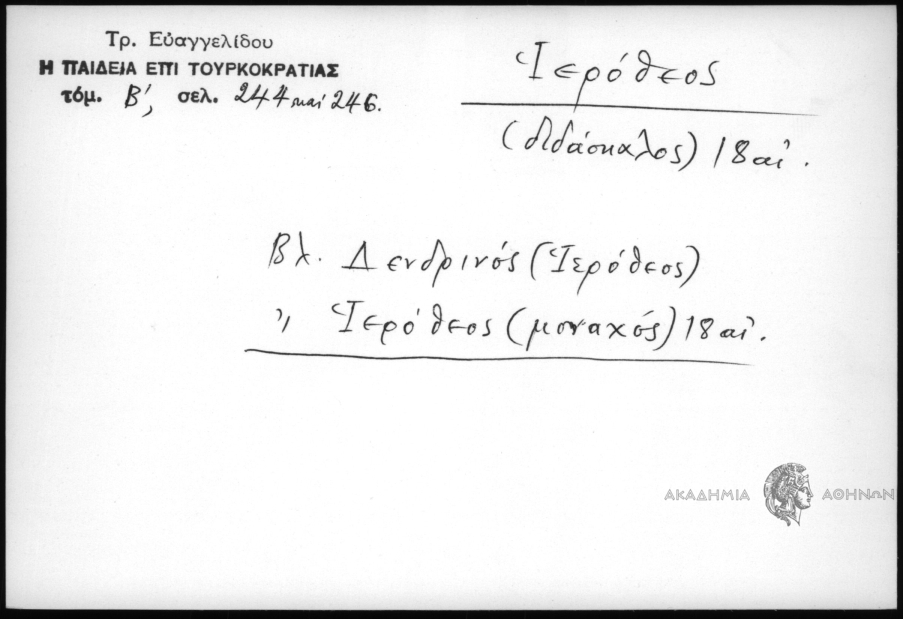 Τρ. Εὐαγγελίδου
Η ΠΑΙΔΕΙΑ ΕΠΙ ΤΟΥΡΚΟΚΡΑΤΙΑΣ
τόμ. Β', σελ. 244 καί 246.
Ἱερόθεος
(διδάσκαλος) 18 αἰ.
Βλ. Δενδρινός (Ἱερόθεος)
〃 Ἱερόθεος (μοναχός) 18 αἰ.
ΑΚΑΔΗΜΙΑ ΑΘΗΝΩΝ